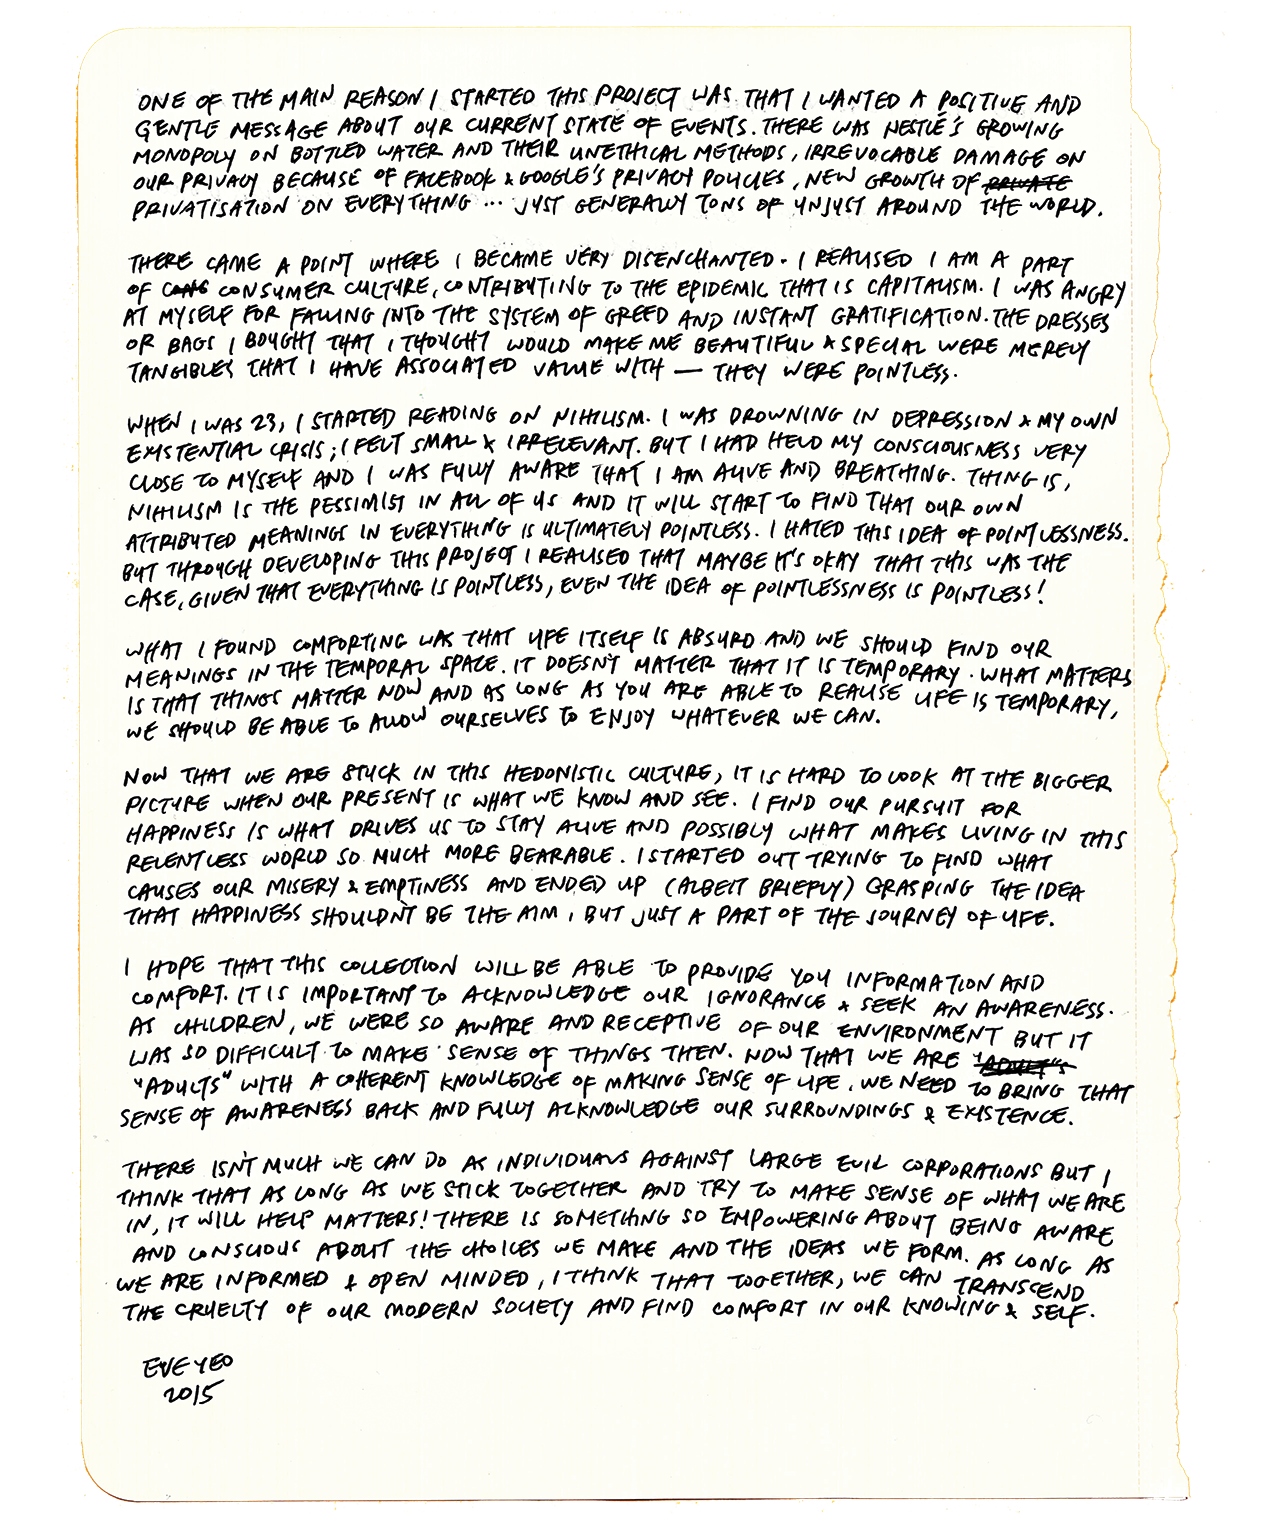 ONE OF THE MAIN REASON I STARTED THIS PROJECT WAS THAT I WANTED A POSITIVE AND
GENTLE MESSAGE ABOUT OUR CURRENT STATE OF EVENTS. THERE WAS NESTLÉ'S GROWING
MONOPOLY ON BOTTLED WATER AND THEIR UNETHICAL METHODS, IRREVOCABLE DAMAGE ON
OUR PRIVACY BECAUSE OF FACEBOOK & GOOGLE'S PRIVACY POLICIES, NEW GROWTH OF PRIVATE
PRIVATISATION ON EVERYTHING ... JUST GENERALLY TONS OF UNJUST AROUND THE WORLD.

THERE CAME A POINT WHERE I BECAME VERY DISENCHANTED. I REALISED I AM A PART
OF CONS CONSUMER CULTURE, CONTRIBUTING TO THE EPIDEMIC THAT IS CAPITALISM. I WAS ANGRY
AT MYSELF FOR FALLING INTO THE SYSTEM OF GREED AND INSTANT GRATIFICATION. THE DRESSES
OR BAGS I BOUGHT THAT I THOUGHT WOULD MAKE ME BEAUTIFUL & SPECIAL WERE MERELY
TANGIBLES THAT I HAVE ASSOCIATED VALUE WITH — THEY WERE POINTLESS.

WHEN I WAS 23, I STARTED READING ON NIHILISM. I WAS DROWNING IN DEPRESSION & MY OWN
EXISTENTIAL CRISIS; I FELT SMALL & IRRELEVANT. BUT I HAD HELD MY CONSCIOUSNESS VERY
CLOSE TO MYSELF AND I WAS FULLY AWARE THAT I AM ALIVE AND BREATHING. THING IS,
NIHILISM IS THE PESSIMIST IN ALL OF US AND IT WILL START TO FIND THAT OUR OWN
ATTRIBUTED MEANINGS IN EVERYTHING IS ULTIMATELY POINTLESS. I HATED THIS IDEA OF POINTLESSNESS.
BUT THROUGH DEVELOPING THIS PROJECT I REALISED THAT MAYBE IT'S OKAY THAT THIS WAS THE
CASE, GIVEN THAT EVERYTHING IS POINTLESS, EVEN THE IDEA OF POINTLESSNESS IS POINTLESS!

WHAT I FOUND COMFORTING WAS THAT LIFE ITSELF IS ABSURD AND WE SHOULD FIND OUR
MEANINGS IN THE TEMPORAL SPACE. IT DOESN'T MATTER THAT IT IS TEMPORARY. WHAT MATTERS
IS THAT THINGS MATTER NOW AND AS LONG AS YOU ARE ABLE TO REALISE LIFE IS TEMPORARY,
WE SHOULD BE ABLE TO ALLOW OURSELVES TO ENJOY WHATEVER WE CAN.

NOW THAT WE ARE STUCK IN THIS HEDONISTIC CULTURE, IT IS HARD TO LOOK AT THE BIGGER
PICTURE WHEN OUR PRESENT IS WHAT WE KNOW AND SEE. I FIND OUR PURSUIT FOR
HAPPINESS IS WHAT DRIVES US TO STAY ALIVE AND POSSIBLY WHAT MAKES LIVING IN THIS
RELENTLESS WORLD SO MUCH MORE BEARABLE. I STARTED OUT TRYING TO FIND WHAT
CAUSES OUR MISERY & EMPTINESS AND ENDED UP (ALBEIT BRIEFLY) GRASPING THE IDEA
THAT HAPPINESS SHOULDN'T BE THE AIM, BUT JUST A PART OF THE JOURNEY OF LIFE.

I HOPE THAT THIS COLLECTION WILL BE ABLE TO PROVIDE YOU INFORMATION AND
COMFORT. IT IS IMPORTANT TO ACKNOWLEDGE OUR IGNORANCE & SEEK AN AWARENESS.
AS CHILDREN, WE WERE SO AWARE AND RECEPTIVE OF OUR ENVIRONMENT BUT IT
WAS SO DIFFICULT TO MAKE SENSE OF THINGS THEN. NOW THAT WE ARE "ADULT"S
"ADULTS" WITH A COHERENT KNOWLEDGE OF MAKING SENSE OF LIFE, WE NEED TO BRING THAT
SENSE OF AWARENESS BACK AND FULLY ACKNOWLEDGE OUR SURROUNDINGS & EXISTENCE.

THERE ISN'T MUCH WE CAN DO AS INDIVIDUALS AGAINST LARGE EVIL CORPORATIONS BUT I
THINK THAT AS LONG AS WE STICK TOGETHER AND TRY TO MAKE SENSE OF WHAT WE ARE
IN, IT WILL HELP MATTERS! THERE IS SOMETHING SO EMPOWERING ABOUT BEING AWARE
AND CONSCIOUS ABOUT THE CHOICES WE MAKE AND THE IDEAS WE FORM. AS LONG AS
WE ARE INFORMED & OPEN MINDED, I THINK THAT TOGETHER, WE CAN TRANSCEND
THE CRUELTY OF OUR MODERN SOCIETY AND FIND COMFORT IN OUR KNOWING & SELF.

EVE YEO
2015